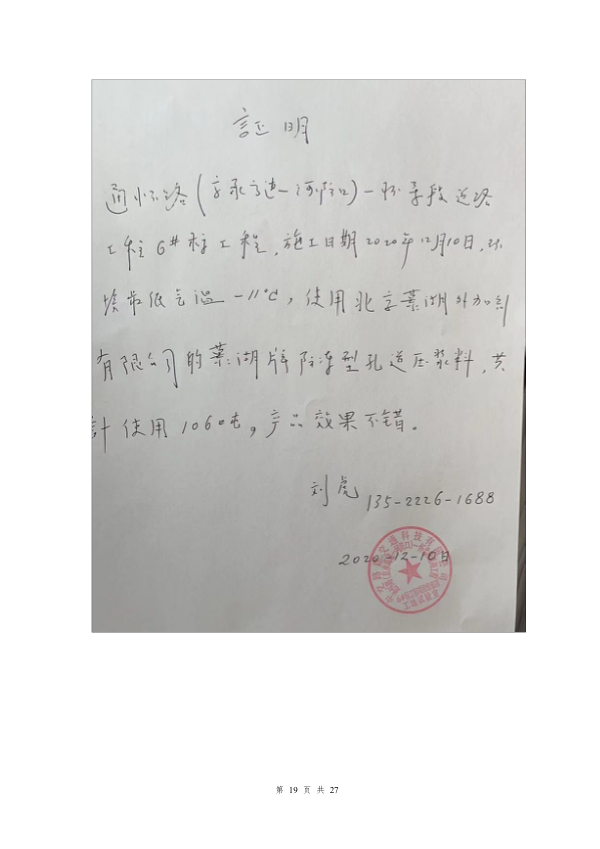 証明
通怀路(京承高速—河防口)一标导段道路
工程6#桥工程,施工日期2020年12月10日,环
境最低气温-11℃,使用北京慕湖外加剂
有限公司的慕湖牌防冻型孔道压浆料,共
計使用1060吨,产品效果不错。
刘虎 135-2226-1688
2020-12-10日
第 19 页 共 27